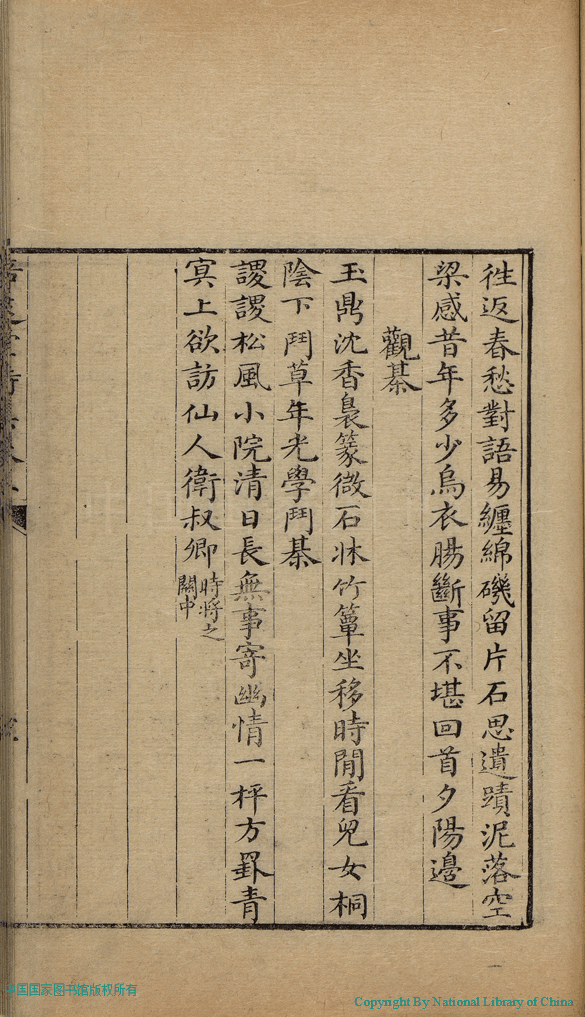 徃返春愁對語易纏綿磯留片石思遺蹟泥落空
梁感昔年多少烏衣腸斷事不堪回首夕陽邊
觀棊
玉鼎沈香裊篆微石牀竹簟坐移時閒看兒女桐
陰下鬥草年光學鬥棊
謖謖松風小院清日長無事寄幽情一枰方罫青
冥上欲訪仙人衛叔卿時將之
關中
中国国家图书馆版权所有
Copyright By National Library of China